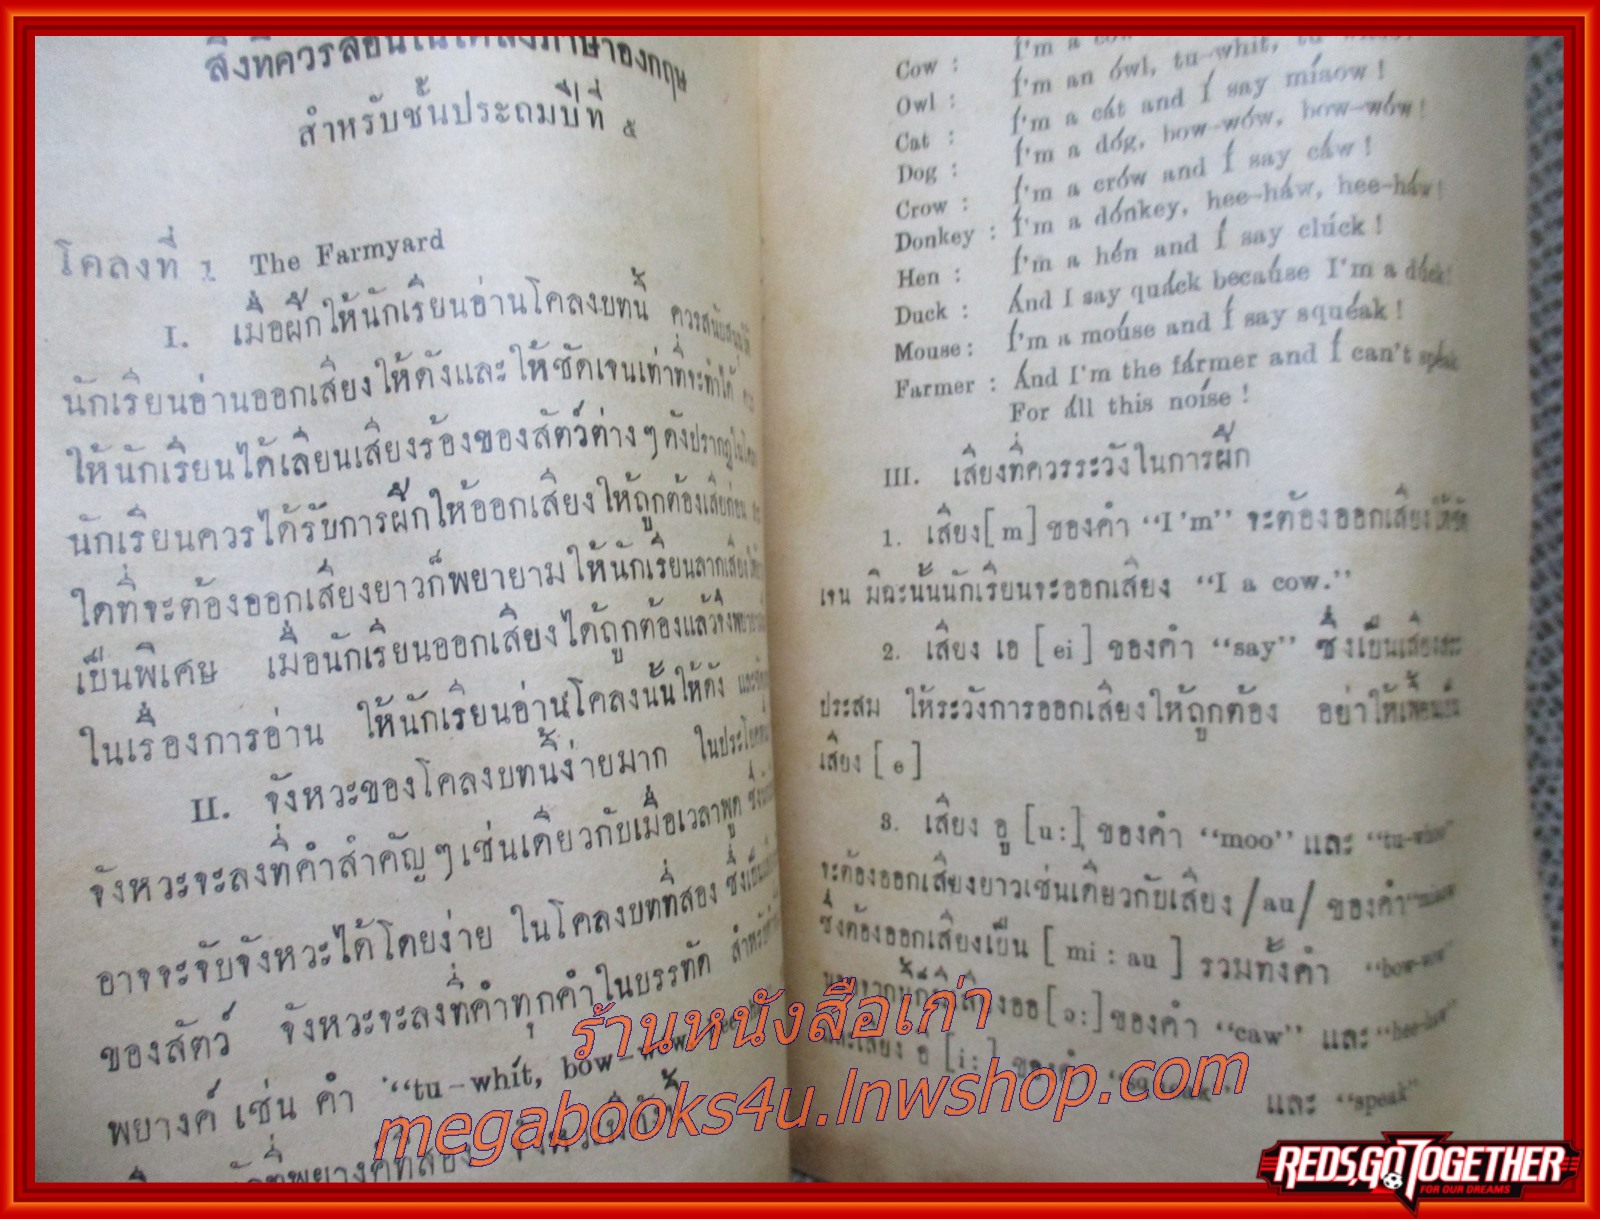 สิ่งที่ควรสอนในโคลงภาษาอังกฤษ
สำหรับชั้นประถมปีที่ ๕
โคลงที่ 1 The Farmyard
I. เมื่อฝึกให้นักเรียนอ่านโคลงบทนี้
นักเรียนอ่านออกเสียงให้ดังและให้ชัดเจนเท่าที่จะทำได้
ให้นักเรียนได้เลียนเสียงร้องของสัตว์ต่างๆ ดังปรากฏ
นักเรียนควรได้รับการฝึกให้ออกเสียงให้ถูกต้องเสียก่อน
ใดที่จะต้องออกเสียงยาวก็พยายามให้นักเรียนลากเสียง
เป็นพิเศษ เมื่อนักเรียนออกเสียงได้ถูกต้องแล้วจึง
ในเรื่องการอ่าน ให้นักเรียนอ่านโคลงนั้นให้ดัง
II. จังหวะของโคลงบทนี้ง่ายมาก ในประโยค
จังหวะจะลงที่คำสำคัญๆ เช่นเดียวกับเมื่อเวลาพูด
อาจจะจับจังหวะได้โดยง่าย ในโคลงบทที่สอง
ของสัตว์ จังหวะจะลงที่คำทุกคำในบรรทัด
พยางค์ เช่น คำ "tu-whít, bow-wow,
Cow : I'm a cow
Owl : I'm an ówl, tu-whit,
Cat : I'm a cát and I say míaow !
Dog : I'm a dóg, bow-wów, bow-wów!
Crow : I'm a crów and I say cáw !
Donkey : I'm a dónkey, hee-háw, hee-háw!
Hen : I'm a hén and I say clúck !
Duck : And I say quáck because I'm a dúck!
Mouse: I'm a móuse and I say squéak !
Farmer : And I'm the fármer and I can't speak
For áll this nóise !
III. เสียงที่ควรระวังในการฝึก
1. เสียง [ m ] ของคำ "I'm" จะต้องออกเสียงให้ชัด
เจน มิฉะนั้นนักเรียนจะออกเสียง "I a cow."
2. เสียง เอ [ ei ] ของคำ "say" ซึ่งเป็นเสียงสระ
ประสม ให้ระวังการออกเสียงให้ถูกต้อง อย่าให้เพี้ยนเป็น
เสียง [ e ]
3. เสียง อู [ u: ] ของคำ "moo" และ
จะต้องออกเสียงยาวเช่นเดียวกับเสียง /au/ ของคำ
ซึ่งต้องออกเสียงเป็น [ mi : au ] รวมทั้งคำ "bow-wow"
ของคำ "caw" และ "hee-haw"
และเสียง อี [ i: ] ของคำ "squeak" และ "speak"
ร้านหนังสือเก่า
megabooks4u.lnwshop.com
REDS,GO TOGETHER
FOR OUR DREAMS